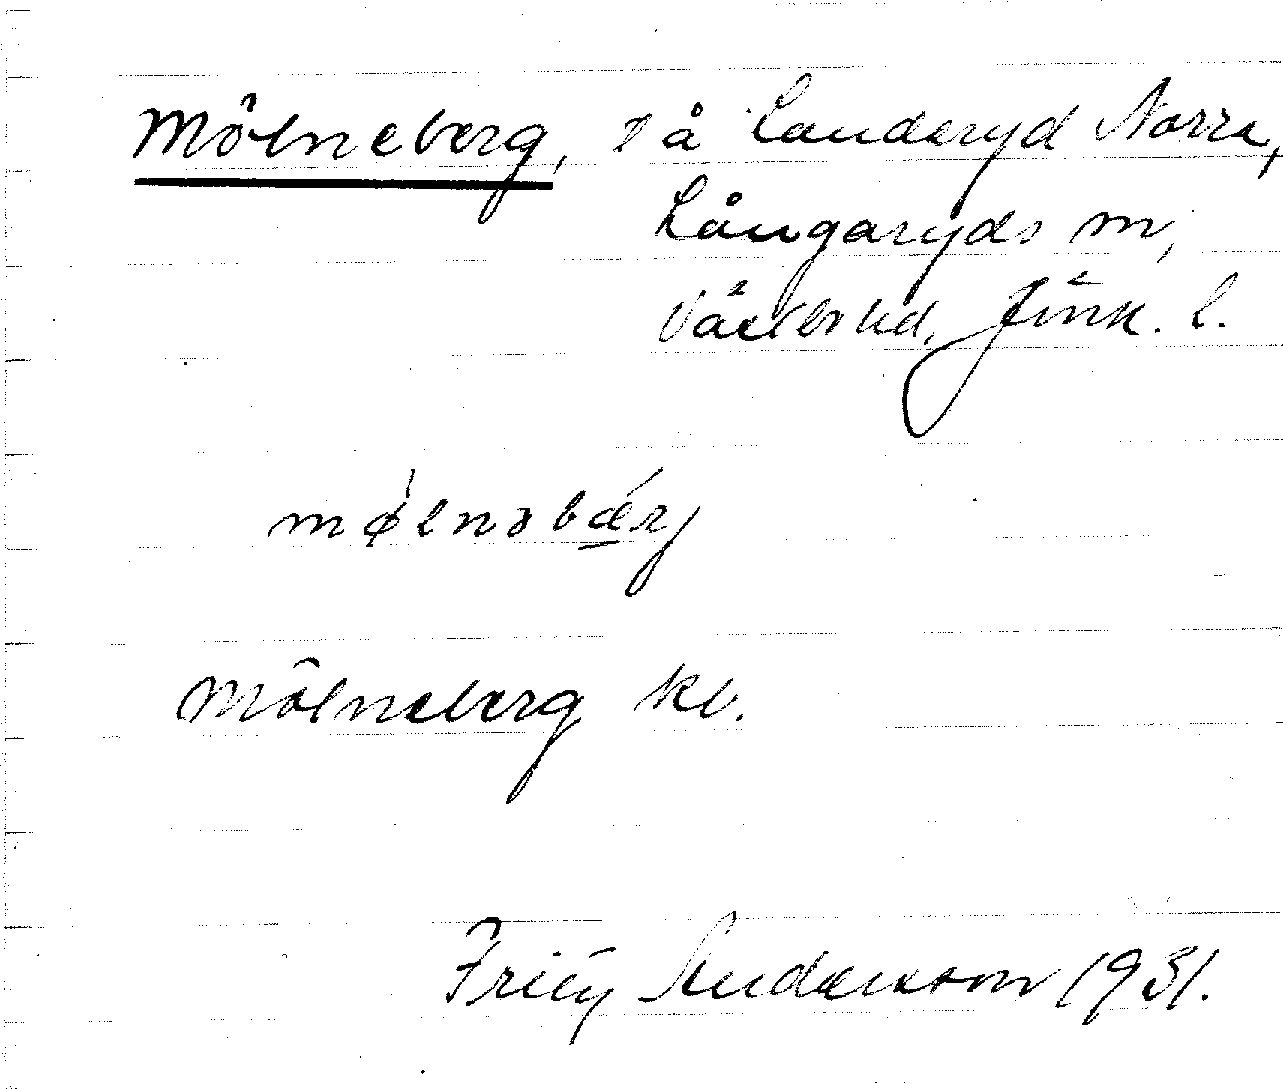 Mölneberg, på Landeryd Norra,
Långaryds sn,
Västbo hd, Jönk. l.
mø̀lnəbǽrj
Mölneberg kb.
Fritz Andersson 1931.